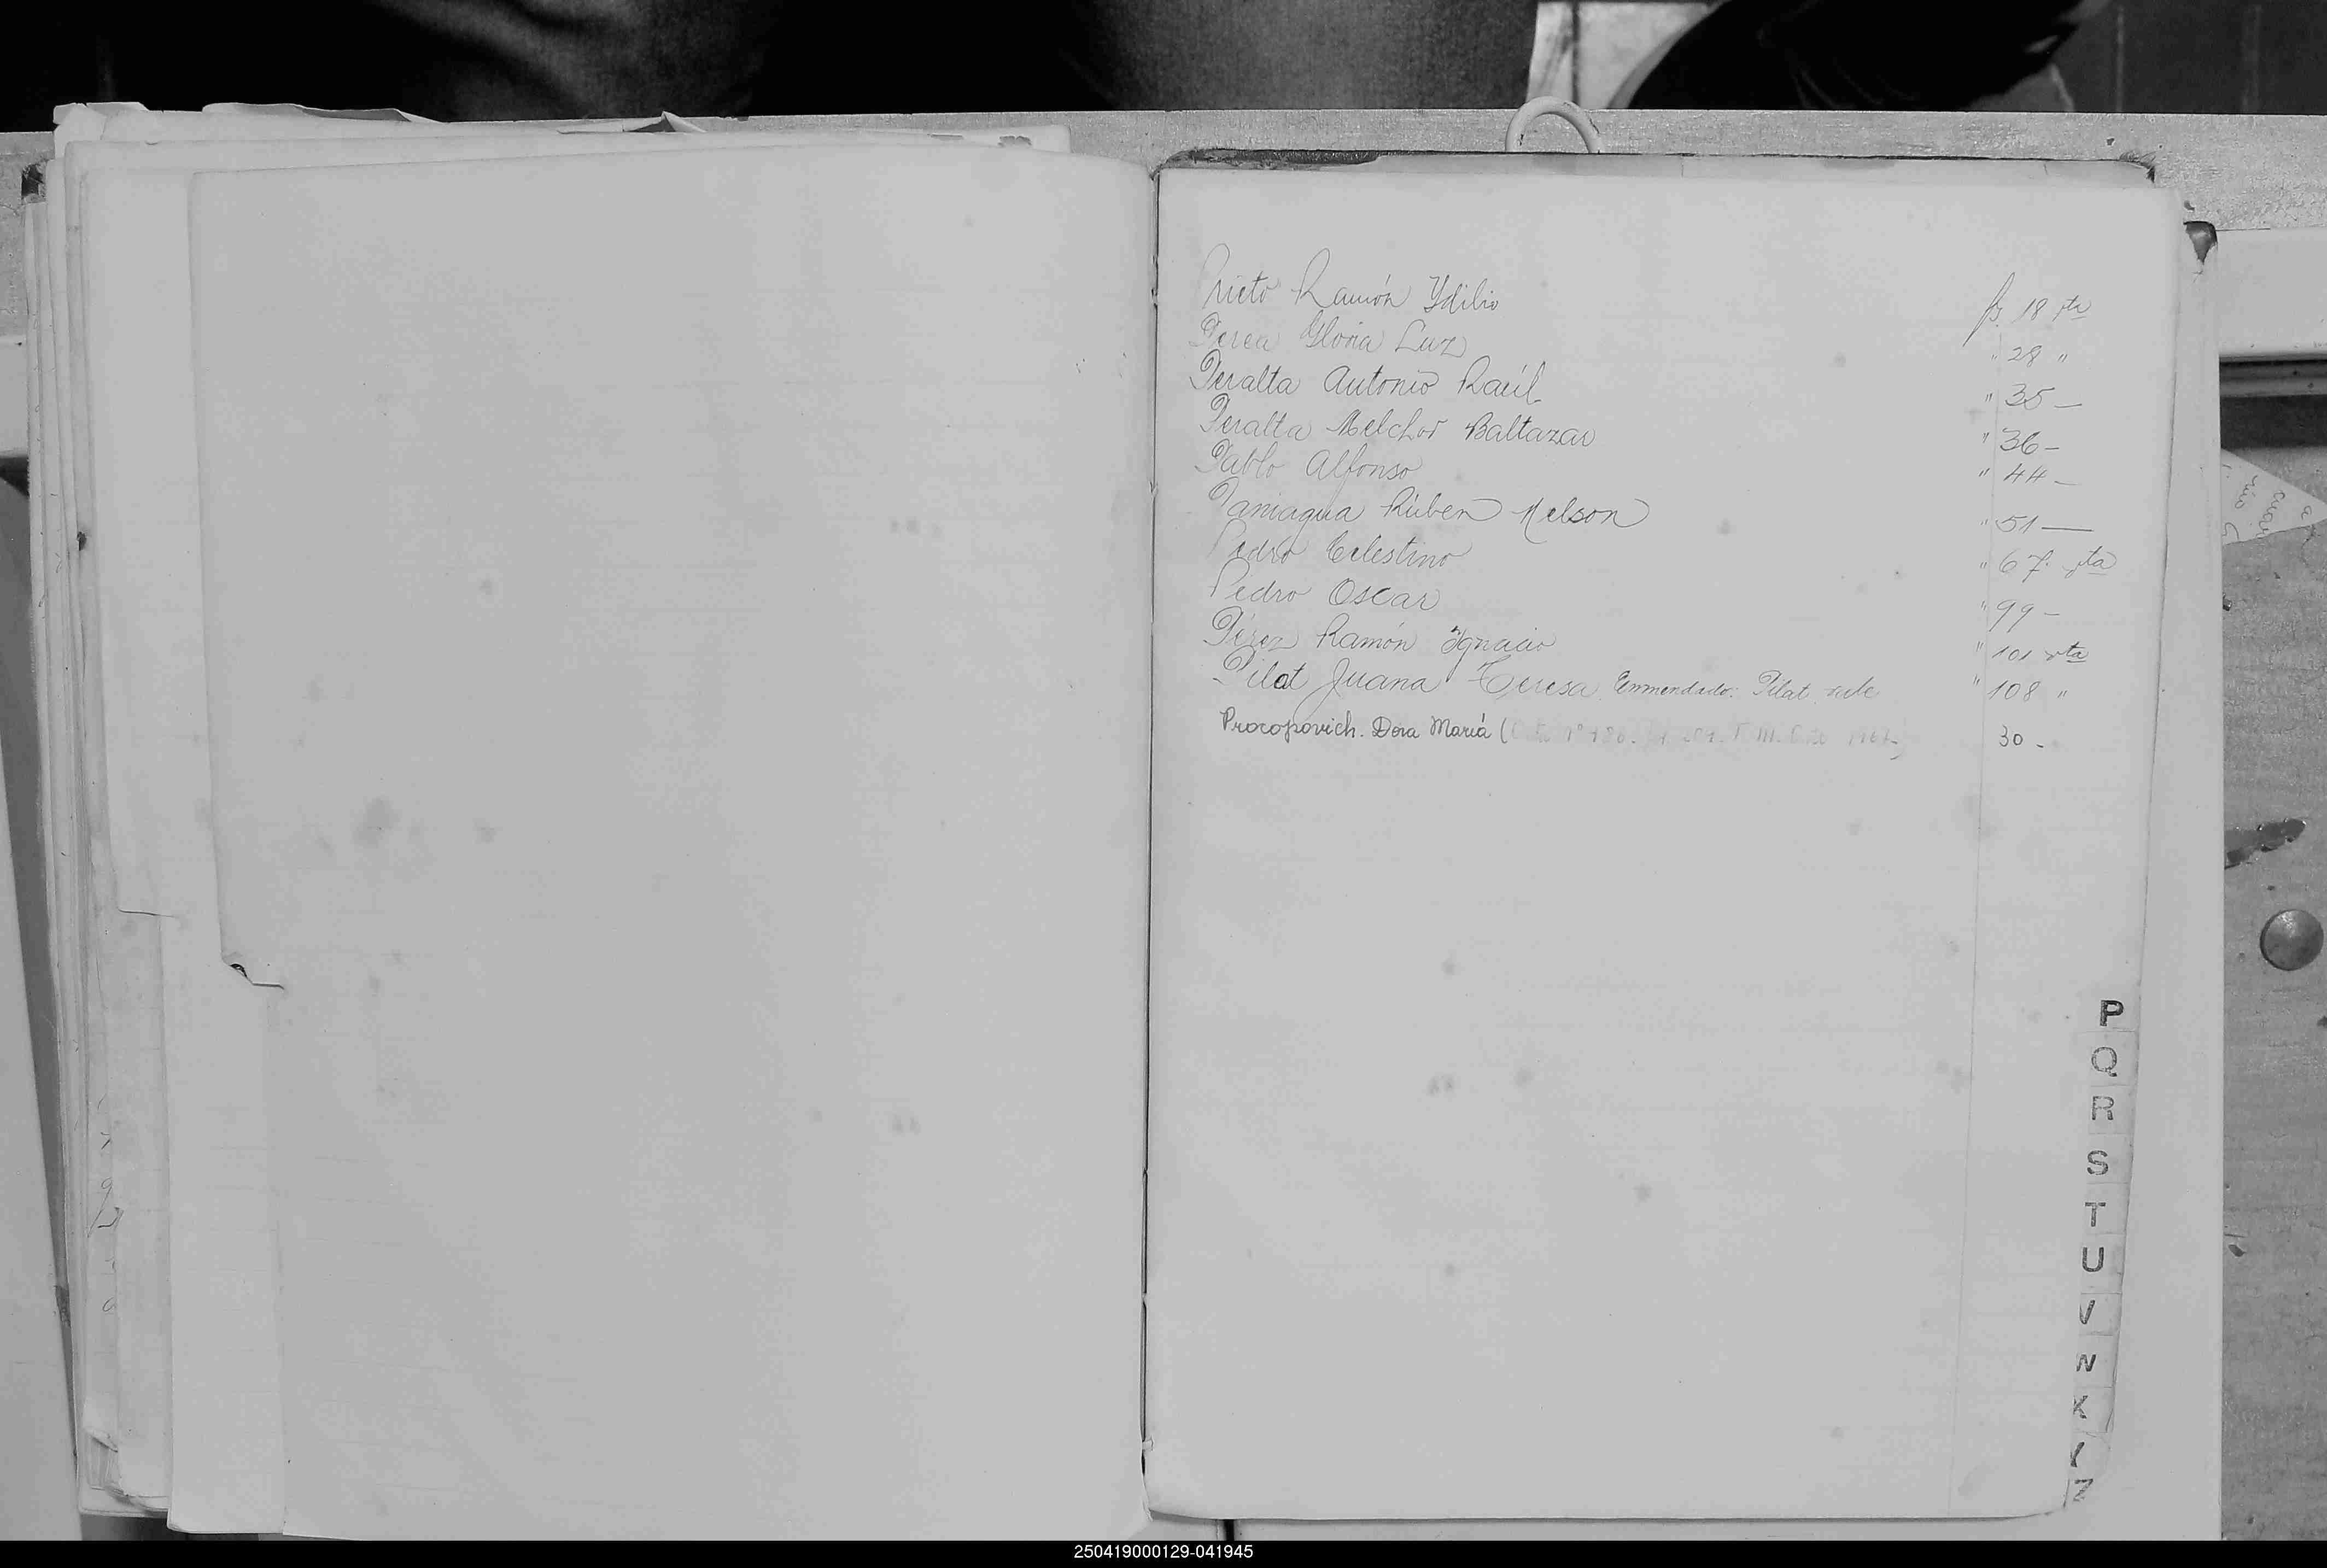 Prieto Ramón Ydilio fs. 18 vta
Perea Gloria Luz " 28 "
Peralta Antonio Raúl " 35 —
Peralta Melchor Baltazar " 36 —
Pablo Alfonso " 44 —
Paniagua Rúben Nelson " 51 —
Pedro Celestino " 67 vta
Pedro Oscar " 99 —
Pérez Ramón Ygnacio " 101 vta
Pilat Juana Teresa Enmendado: Pilat vale " 108 "
Procopovich. Dora Mariá ( 30 -
P
Q
R
S
T
U
V
W
X
Y
Z
250419000129-041945